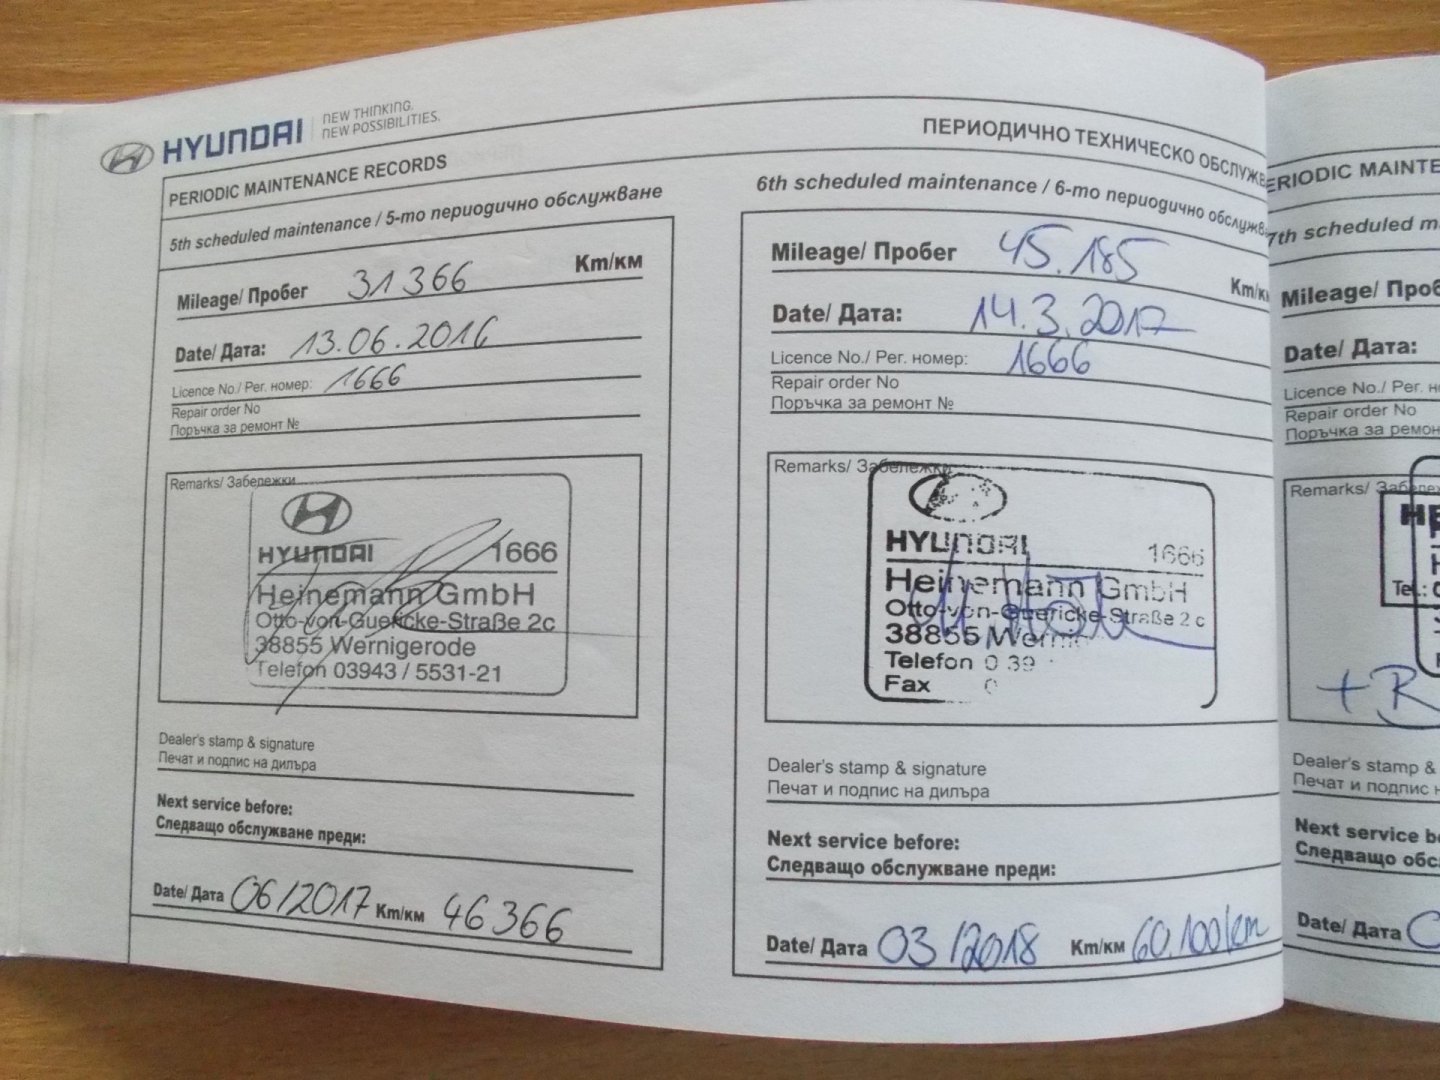 HYUNDAI
NEW THINKING.
NEW POSSIBILITIES.
PERIODIC MAINTENANCE RECORDS
5th scheduled maintenance / 5-то периодично обслужване
Mileage/ Пробег 31 366 Km/км
Date/ Дата: 13.06.2016
Licence No./ Рег. номер: 1666
Repair order No
Поръчка за ремонт №
Remarks/ Забележки
HYUNDAI 1666
Heinemann GmbH
Otto-von-Guericke-Straße 2c
38855 Wernigerode
Telefon 03943 / 5531-21
Dealer's stamp & signature
Печат и подпис на дилъра
Next service before:
Следващо обслужване преди:
Date/ Дата 06/2017 Km/км 46366
ПЕРИОДИЧНО ТЕХНИЧЕСКО ОБСЛУЖВ
6th scheduled maintenance / 6-то периодично обслужв
Mileage/ Пробег 45.185 Km/км
Date/ Дата: 14.3.2017
Licence No./ Рег. номер: 1666
Repair order No
Поръчка за ремонт №
Remarks/ Забележки
HYUNDAI 1666
Heinemann GmbH
Otto-von-Guericke-Straße 2 c
38855 Werni
Telefon 0 39
Fax 0
Dealer's stamp & signature
Печат и подпис на дилъра
Next service before:
Следващо обслужване преди:
Date/ Дата 03/2018 Km/км 60.100 km
ERIODIC MAINTE
7th scheduled m
Mileage/ Проб
Date/ Дата:
Licence No./ Рег. н
Repair order No
Поръчка за ремон
Remarks/ Забележ
HE
Tel.: 0
+ R
Dealer's stamp &
Печат и подпис н
Next service be
Следващо обс
Date/ Дата 0